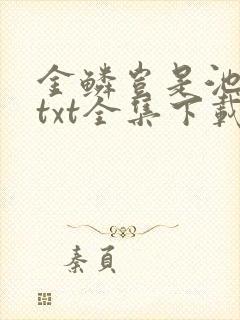 金鳞岂是池
txt全集下载
秦頁